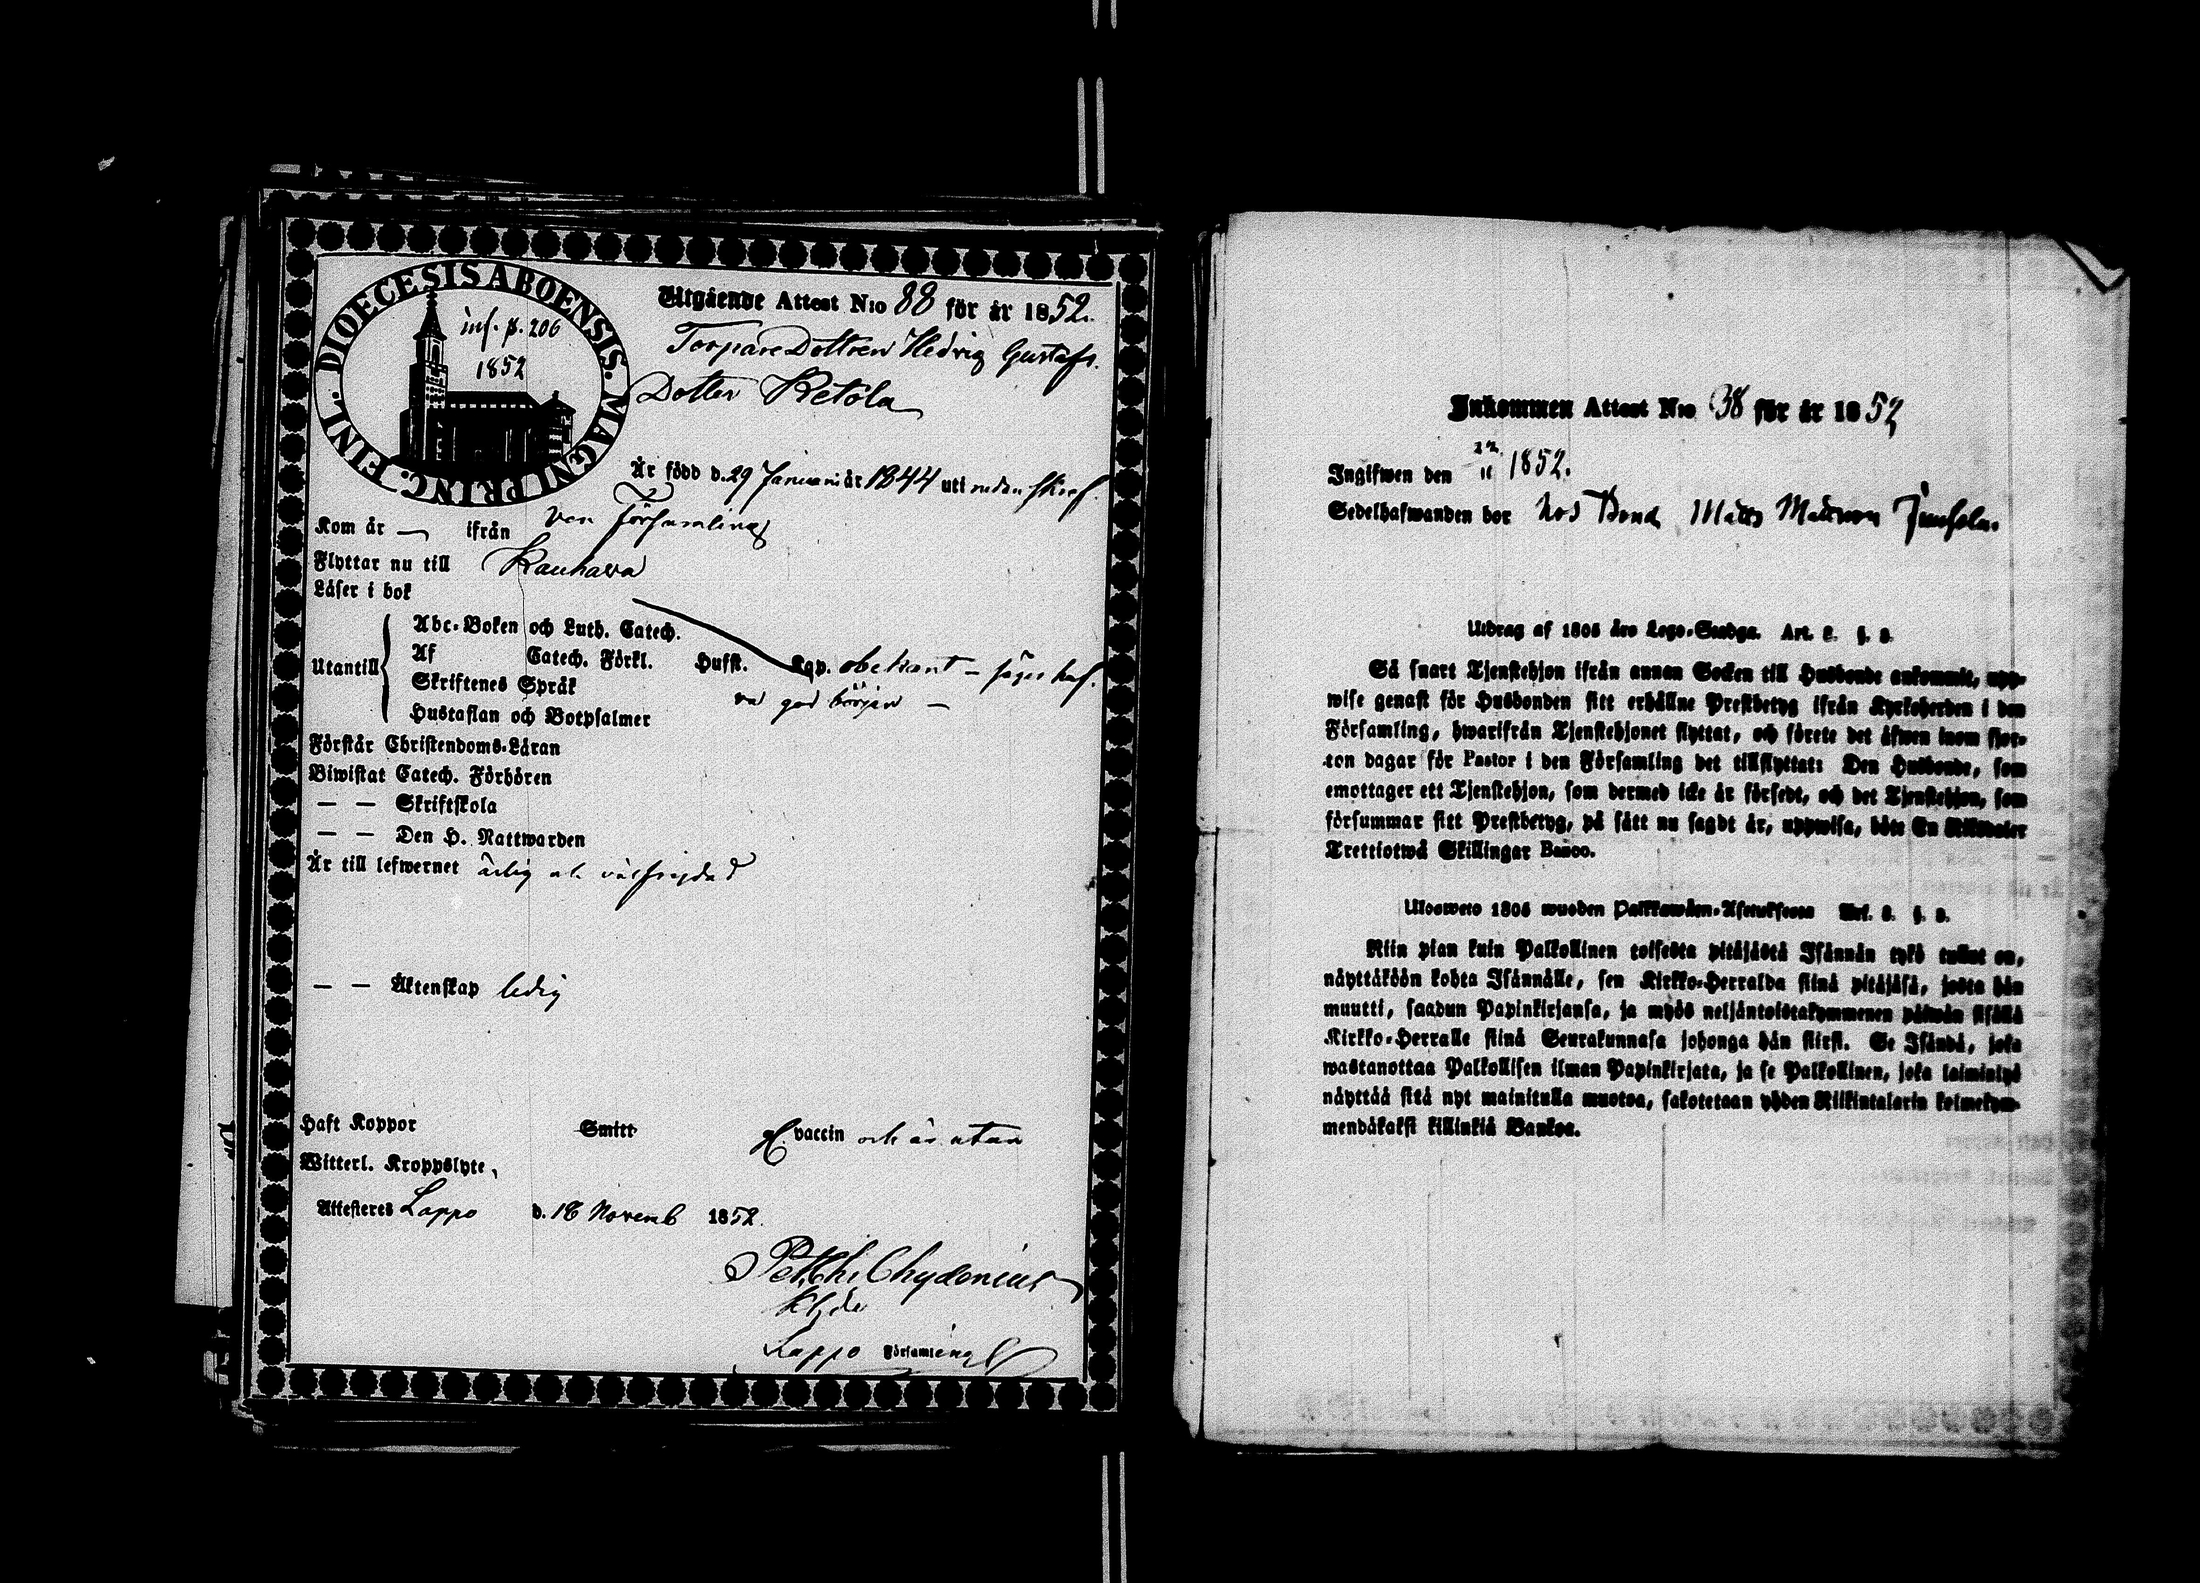 DIOECESIS ABOENSIS. MAGNI PRINC. FINL.
inf. p. 206
1852
Utgående Attest N:o 88 för år 1852.
Torpare Dottren Hedvig Gustafs
Dotter Ketola
Är född d. 29 Januari år 1844 uti nedanskref.
Kom år — ifrån Församling
Flyttar nu till Kauhava
Läser i bok
Utantill
Abc-Boken och Luth. Catech.
Af Catech. Förkl. Husft. Lgp. obekant – säges haf-
Skriftenes Språk va god början –
Hustaflan och Botpsalmer
Förstår Christendoms-Läran
Biwistat Catech. Förhören
— — Skriftskola
— — Den H. Nattwarden
Är till lefwernet ärlig och välfrejdad
— — Äktenskap ledig
Haft Koppor Smitt vaccin och är utan
Witterl. Kroppslyte,
Attesteres Lappo d. 18 Novemb 1852.
Chydenius
Lappo Församling
Inkommen Attest N:o 38 för år 1852
Ingifwen den 22/11 1852.
Sedelhafwanden bor hos Bond Matts Mattsson
Utdrag af 1805 års Lego-Stadga. Art. 2. §. 2.
Så snart Tjenstehjon ifrån annan Socken till Husbonde ankommit, upp-
wise genast för Husbonden sitt erhållne Prestbetyg ifrån Kyrkoherden i den
Församling, hwarifrån Tjenstehjonet flyttat, och förete det äfwen inom fjor-
ton dagar för Pastor i den Församling det tillflyttat: Den Husbonde, som
emottager ett Tjenstehjon, som dermed icke är försedt, och det Tjenstehjon, som
försummar sitt Prestbetyg, på sätt nu sagdt är, uppwisa, böte En Riksdaler
Trettiotwå Skillingar Banco.
Ulosweto 1805 wuoden Palkkawäen-Asetuksesta Art. 2. §. 2.
Niin pian kuin Palkollinen toisesta pitäjästä Isännän tykö tullut on,
näyttäköön kohta Isännälle, sen Kirkko-Herralda siinä pitäjäsä, josta hän
muutti, saadun Papinkirjansa, ja myös neljäntoistakymmenen päiwän sisällä
Kirkko-Herralle siinä Seurakunnasa johonga hän siirsi. Se Isändä, joka
wastanottaa Palkollisen ilman Papinkirjata, ja se Palkollinen, joka laiminlyö
näyttää sitä nyt mainitulla muotoa, sakotetaan yhden Riikintalarin kolmekym-
mendäkaksi killinkiä Bankoa.